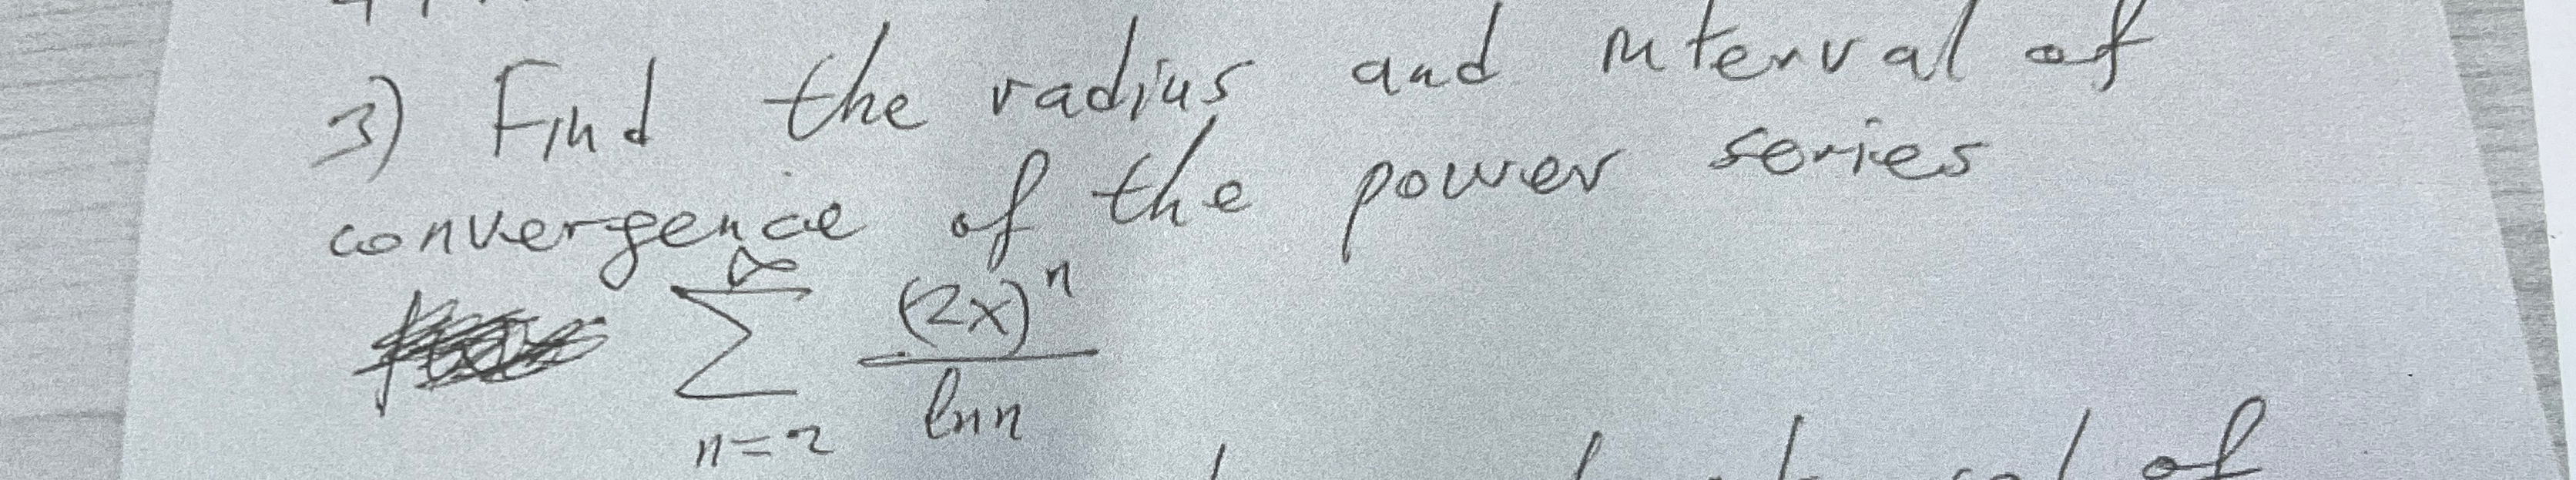 3) Find the radius and interval of
convergence of the power series
∞
∑ (2x)^n / ln n
n=2
of